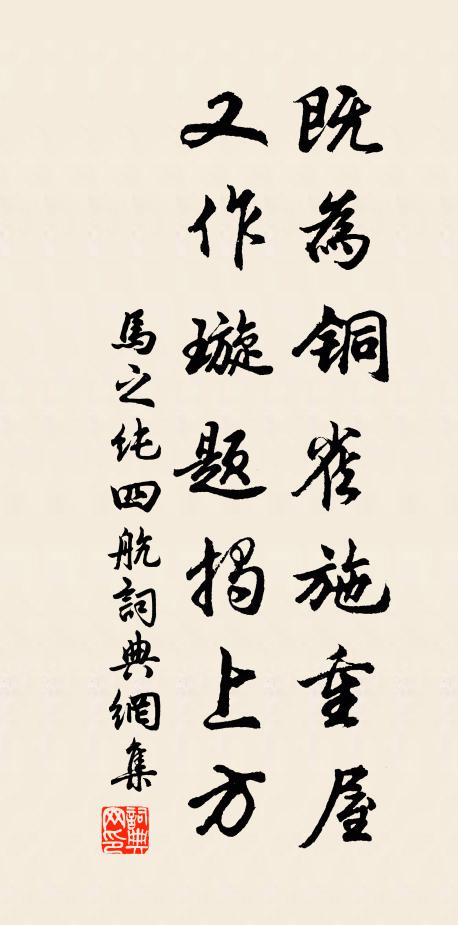 既為銅雀施重屋
又作璇題揭上方
馬之純四航詞典網集
詞典網印